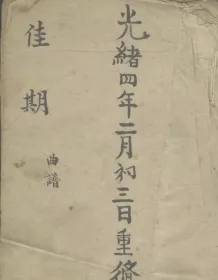 光緒四年二月初三日重修
佳期
曲譜